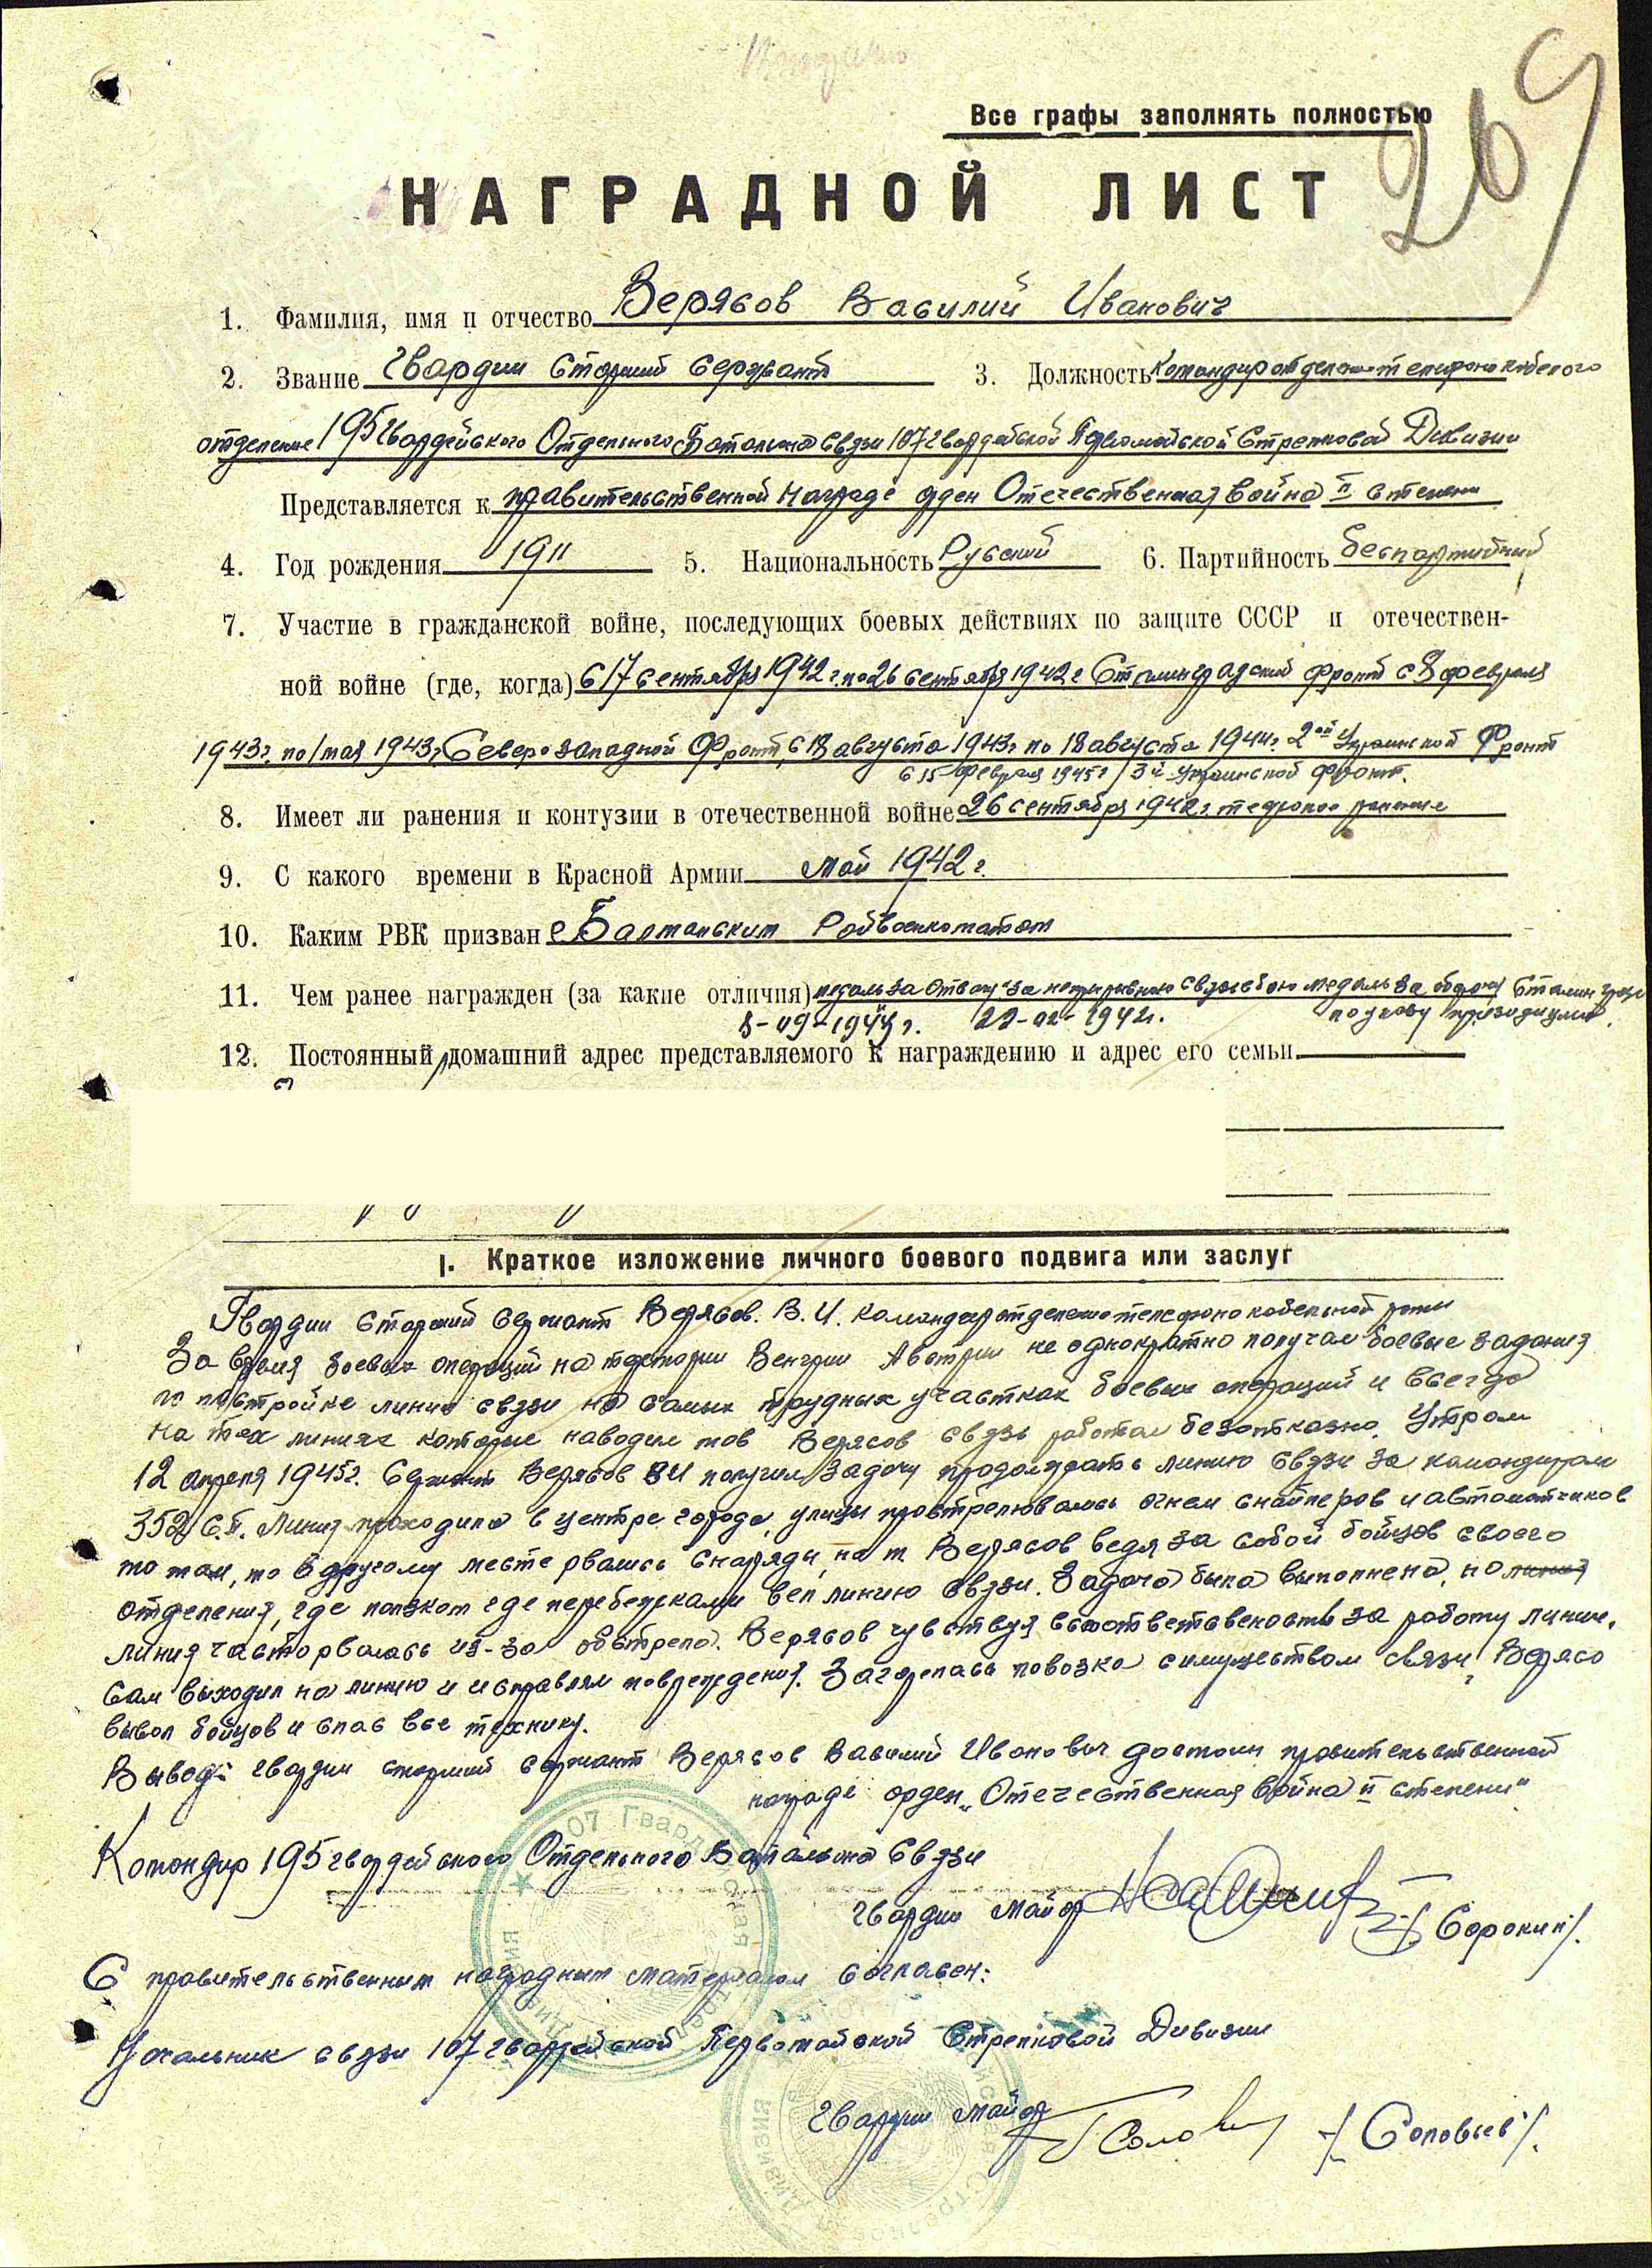 Все графы заполнять полностью
269
НАГРАДНОЙ ЛИСТ
1. Фамилия, имя и отчество Верясов Василий Иванович
2. Звание Гвардии Старший Сержант 3. Должность Командир отделения телефоно кабельного
отделение 195 Гвардейского Отдельного Батальона Связи 107 гвардейской Первомайской Стрелковой Дивизии
Представляется к правительственной награде орден Отечественная война II степени
4. Год рождения 1911 5. Национальность Русский 6. Партийность беспартийный
7. Участие в гражданской войне, последующих боевых действиях по защите СССР и отечествен-
ной войне (где, когда) с 17 сентября 1942 г. по 26 сентября 1942 г Сталинградский фронт с 8 февраля
1943 г. по 1 мая 1943 г. Северо западной Фронт, с 18 августа 1943 г по 18 августа 1944 г. 2ой Украинской Фронт
с 15 февраля 1945 г 3й Украинской фронт.
8. Имеет ли ранения и контузии в отечественной войне 26 сентября 1942 г.
9. С какого времени в Красной Армии май 1942 г.
10. Каким РВК призван Райвоенкоматом
11. Чем ранее награжден (за какие отличия) медаль за Отвагу за непрерывную связь в бою медаль за оборону Сталинграда
22-02-194 по указу президиума
12. Постоянный домашний адрес представляемого к награждению и адрес его семьи
I. Краткое изложение личного боевого подвига или заслуг
Гвардии Старший Сержант Верясов. В. И. командир отделения телефоно кабельной роты
За время боевых операций на территории Венгрии Австрии не однократно получал боевые задания
по постройке линии связи на самых трудных участках боевых операций и всегда
на тех линиях которые наводил тов Верясов связь работал безотказно. Утром
12 апреля 1945 г. Сержант Верясов ВИ получил задачу продолжать линию связи за командиром
352 С.П. Линия проходила в центре города, улицы простреливались огнем снайперов и автоматчиков
то там, то в другому месте рвались снаряды, но т. Верясов ведя за собой бойцов своего
отделения, где ползком где перебежками вел линию связи. Задача была выполнена, но линия
линия часто рвалась из-за обстрела. Верясов чувствуя за работу линии,
сам выходил на линию и исправлял повреждения. Загорелась повозка с имуществом связи, Верясо
вывел бойцов и спас все технику.
Вывод: гвардии старший сержант Верясов Василий Иванович достоин правительственной
награде орден „Отечественная война II степени"
Командир 195 гвардейского Отдельного Батальона Связи
гвардии майор /Сорокин/.
С правительственным наградным материалом согласен:
Начальник связи 107 гвардейской Первомайской Стрелковой Дивизии
гвардии майор /Соловьев/.